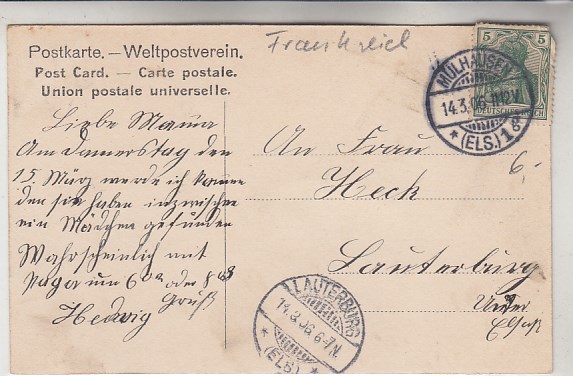 Frankreich
Postkarte. — Weltpostverein.
Post Card. — Carte postale.
Union postale universelle.
Liebe Mama
Am Donnerstag den
15 März werde ich kommen
den sie haben inzwischen
ein Mädchen gefunden
Wahrscheinlich mit
um 6 oder 8
Gruß
Hedwig
An Frau
Heck
Lauterburg
Unter
Elsaß
6,-
5 5
DEUTSCHES REICH
MÜLHAUSEN
14.3.06.11-12V.
* (ELS.) 1
LAUTERBURG
14.3.06.6-7N.
* (ELS.) *